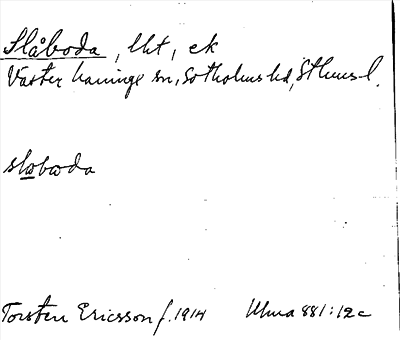 Slåboda, lht, ek
Västerhaninge sn, Sotholms hd, Sthms l.
slobωda
Torsten Ericsson f. 1914 Ulma 881:12c